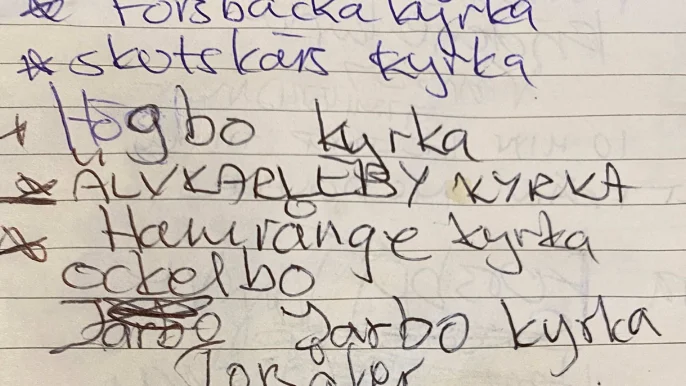 * Forsbacka kyrka
* skutskärs kyrka
+ Högbo kyrka
* ÄLVKARLEBY KYRKA
* Hamrånge kyrka
ockelbo
Järbo Jarbo kyrka
Torsåker